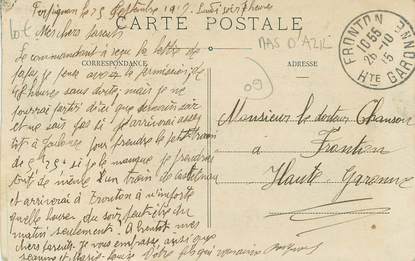 Perpignan le 25 Septembre 191 Lundi soir 7 heures
CARTE POSTALE
Mes chers parents
MAS D'AZIL
CORRESPONDANCE
ADRESSE
FRONTON
1055
26-10
15
Hte GARONNE
09
Le commandant a reçu la lettre de
papa, je peux avoir la permission de
48 heures sans doute, mais je ne
pourrai partir d'ici que demain soir
et ne sais pas si j'arriverai assez
tôt à Toulouse pour prendre le petit train
de si je le manque je prendrai
tout de même un train de Castelnau
et arriverai à Fronton à n'importe
quelle heure, du soir peut-être du
matin seulement. A bientôt mes
chers parents je vous embrasse ainsi que
Jeanne et Marie-Louise Votre fils qui
Monsieur le docteur Chanson
à
Fronton
Haute-Garonne